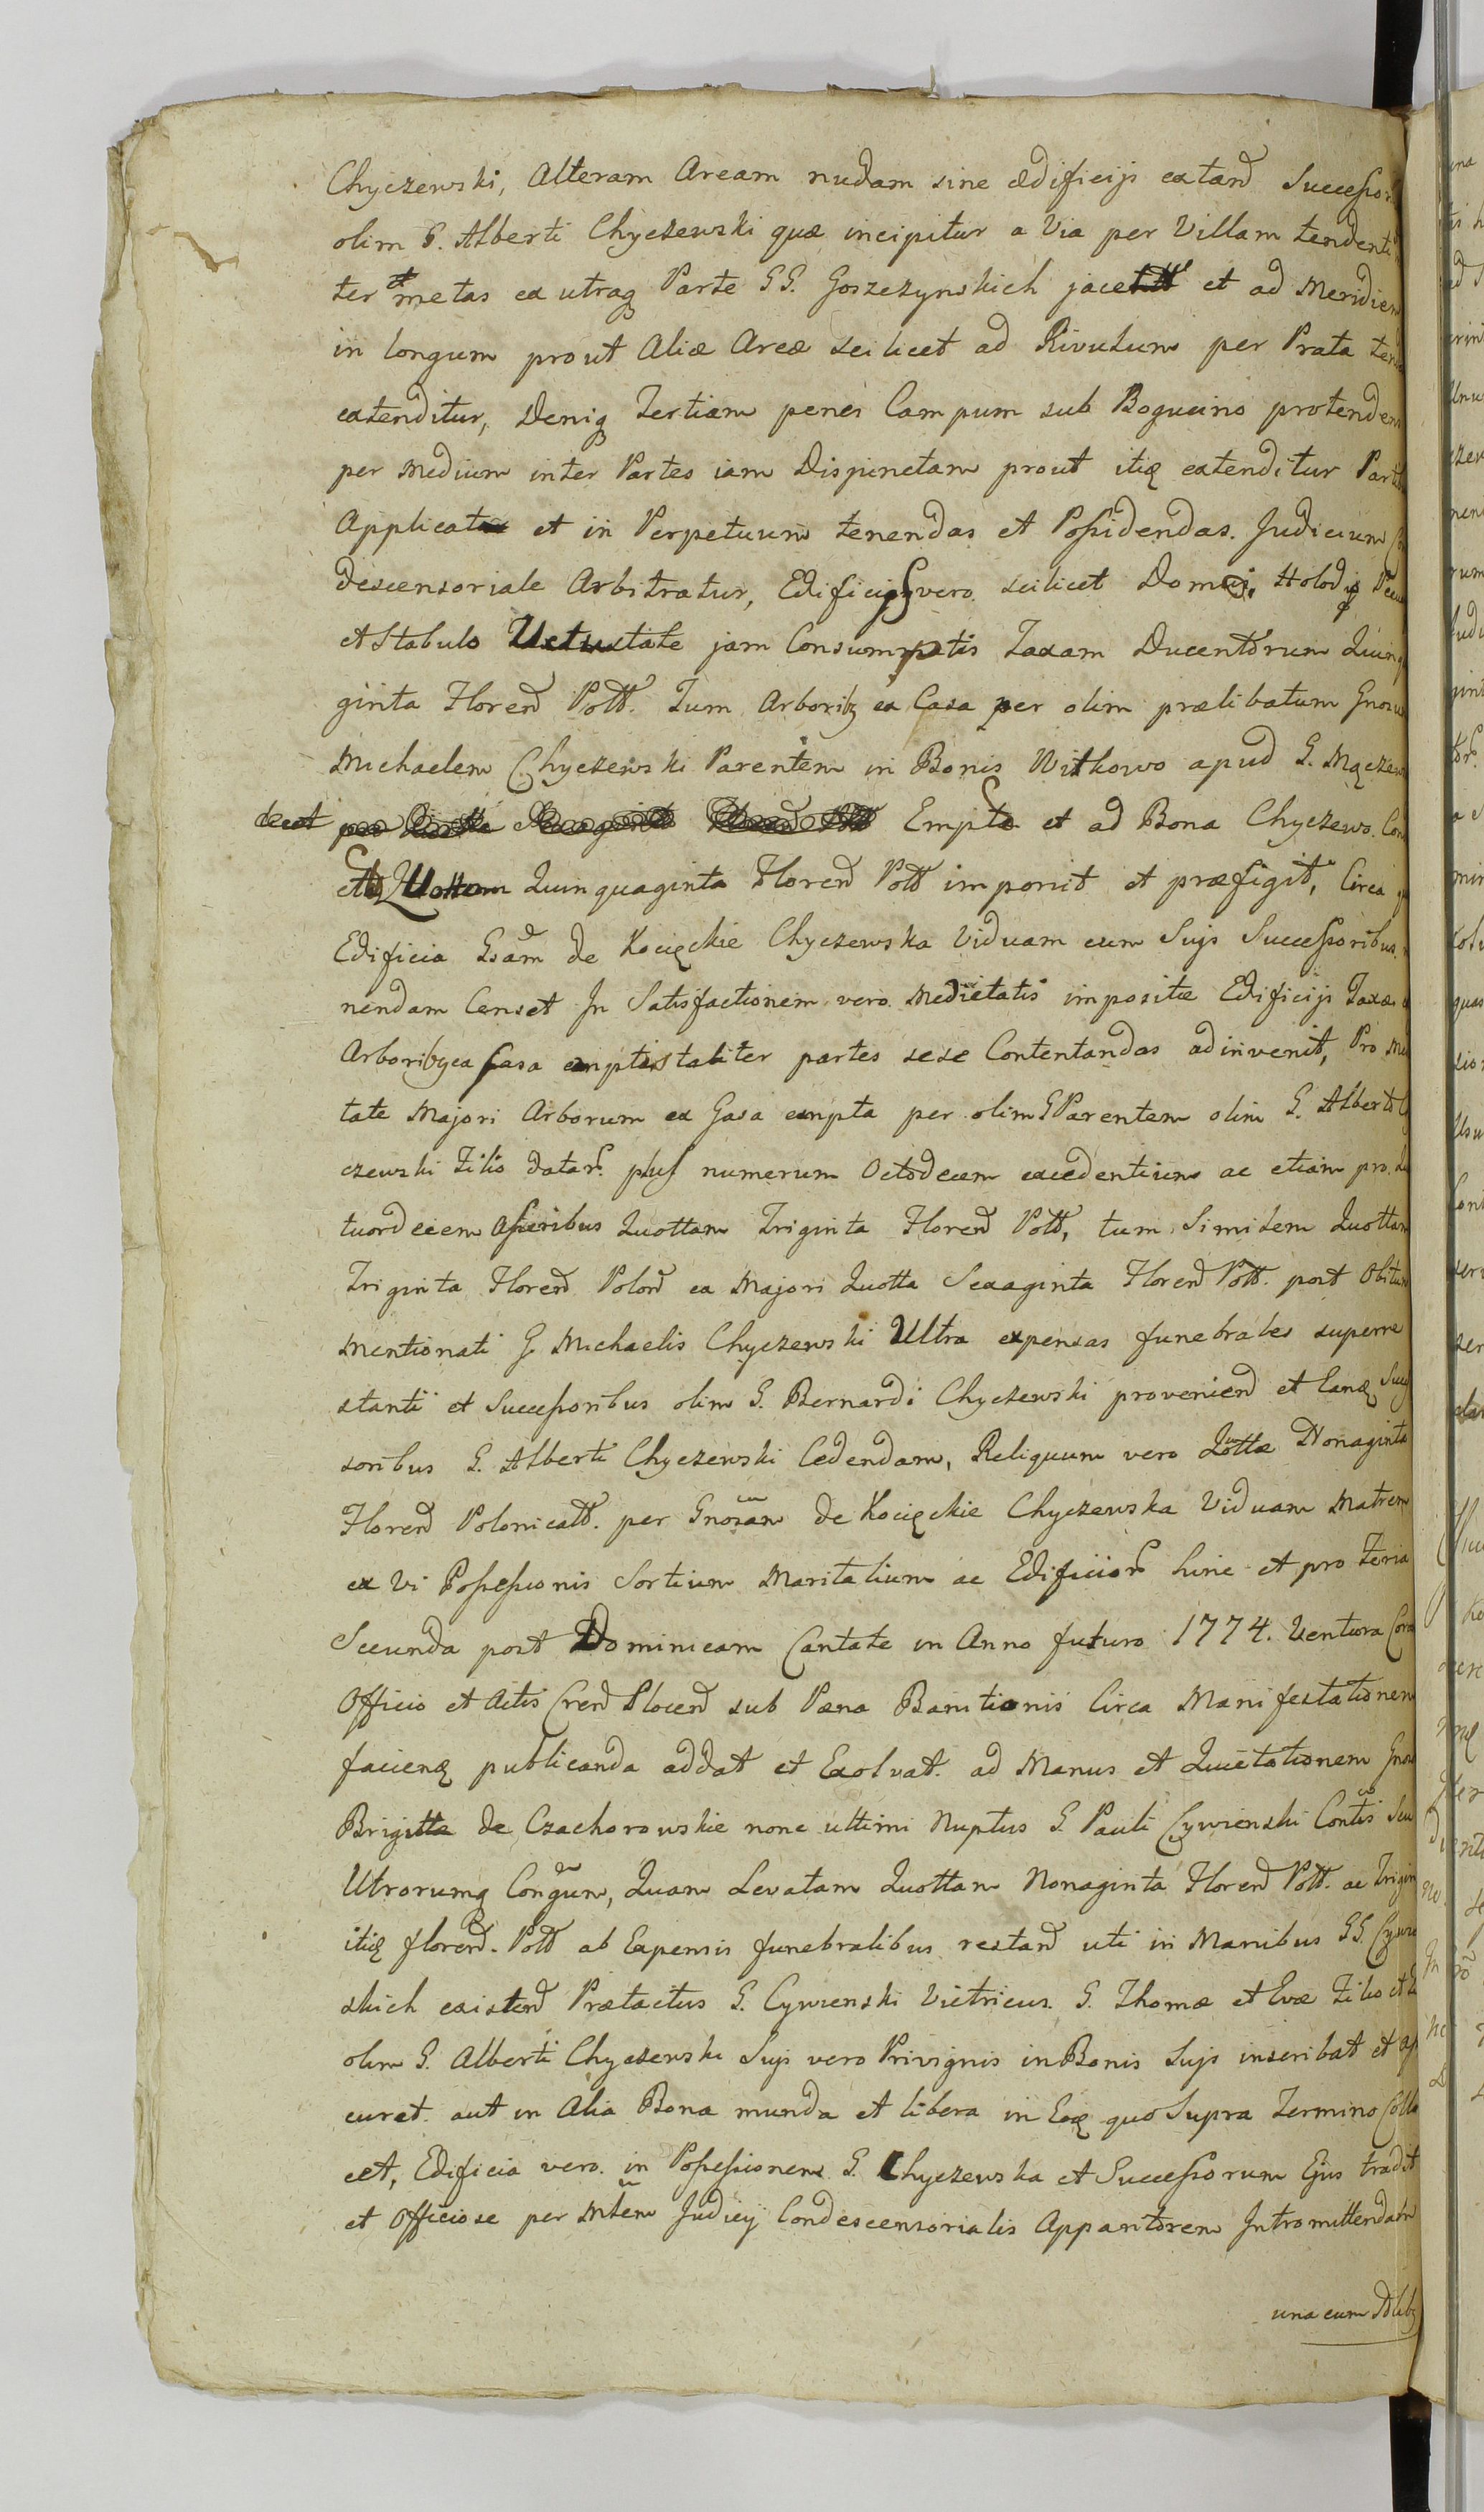 Chyczewski, Alteram Aream nudam sine ædificijs extand Successor
olim G. Alberti Chyczewski quæ incipitur a Via per Villam tendenti
ter et metas ex utraq Parte GG. Goszczynskich jacet et ad Meridiem
in longum prout Aliæ Areæ scilicet ad Rivulum per Prata tend
extenditur, Deniq Tertiam penes Campum sub Bogucino protenden
per Medium inter Partes iam Dispunctam prout itiq extenditur Parti
Applicat et in Perpetuum tenendas et Possidendas. Judicium Con
descensoriale Arbitratur, Edificijs vero scilicet Domui, Holod
et Stabulo Vetustate jam Consumptis Taxam Ducentorum Quinq
ginta Floren Poll. Tum Arboribz ex Casa per olim prælibatum Gnosum
Michaelem Chyczewski Parentem in Bonis Witkowo apud G. Mączew
Empta et ad Bona Chyczewo Con
Quottam Quinquaginta Floren Poll imponit et præfigit, Circa
Edificia Gsam de Kocięckie Chyczewska Viduam cum Sujs Successoribus
nendam Censet In Satisfactionem vero Medietatis impositæ Edificijs Taxæ
Arboribz ex Casa emptis taliter partes sese Contentandas adinvenit, Pro Me
tate Majori Arborum ex Gasa empta per olim G Parentem olim G. Alberto
czewski Filio datar. plus numerum Octodecem excedentium ac etiam pro
tuordecem Asseribus Quottam Triginta Floren Poll, tum Similem Quottam
Triginta Floren Polon ex Majori Quotta Sexaginta Floren Poll. post Obitum
Mentionati G Michaelis Chyczewski Ultra expensas funebrales superre
stanti et Successoribus olim G. Bernardi Chyczewski provenien et Eanq Succes
soribus G. Alberti Chyczewski Cedendam, Reliquum vero Quottæ Nonaginta
Floren Polonicall. per Gnosam de Kocięckie Chyczewska Viduam Matrem
ex Vi Possessionis Sortium Maritalium ac Edificior hinc et pro Feria
Secunda post Dominicam Cantate in Anno futuro 1774. Ventura Cora
Officio et Actis Cren Plocen sub Pæna Banitionis Circa Manifestationem
facienq publicanda addat et Exolvat. ad Manus et Quietationem Gnosæ
Brigittæ de Czachorowskie nonc ultimi Nuptus G Pauli Cywienski Contis Seu
Utrorumq Congum, Quam Levatam Quottam Nonaginta Floren Poll. ac Trigin
itiq floren. Poll ab Expensis funebralibus restan uti in Manibus GG. Cywie
skich existen Prætactus G. Cywienski Victricus. G. Thomæ et Evæ Filio et
olim G. Alberti Chyczewski Sujs vero Privignis in Bonis Sujs inscribat et
curet. aut in Alia Bona munda et libera in Eoq quo Supra Termino Collo
cet, Edificia vero in Possessionem G. Chyczewska et Successorum Ejus tradit
et Officiose per Mtem Judicij Condescensorialis Apparitorem Intromittendam
una cum